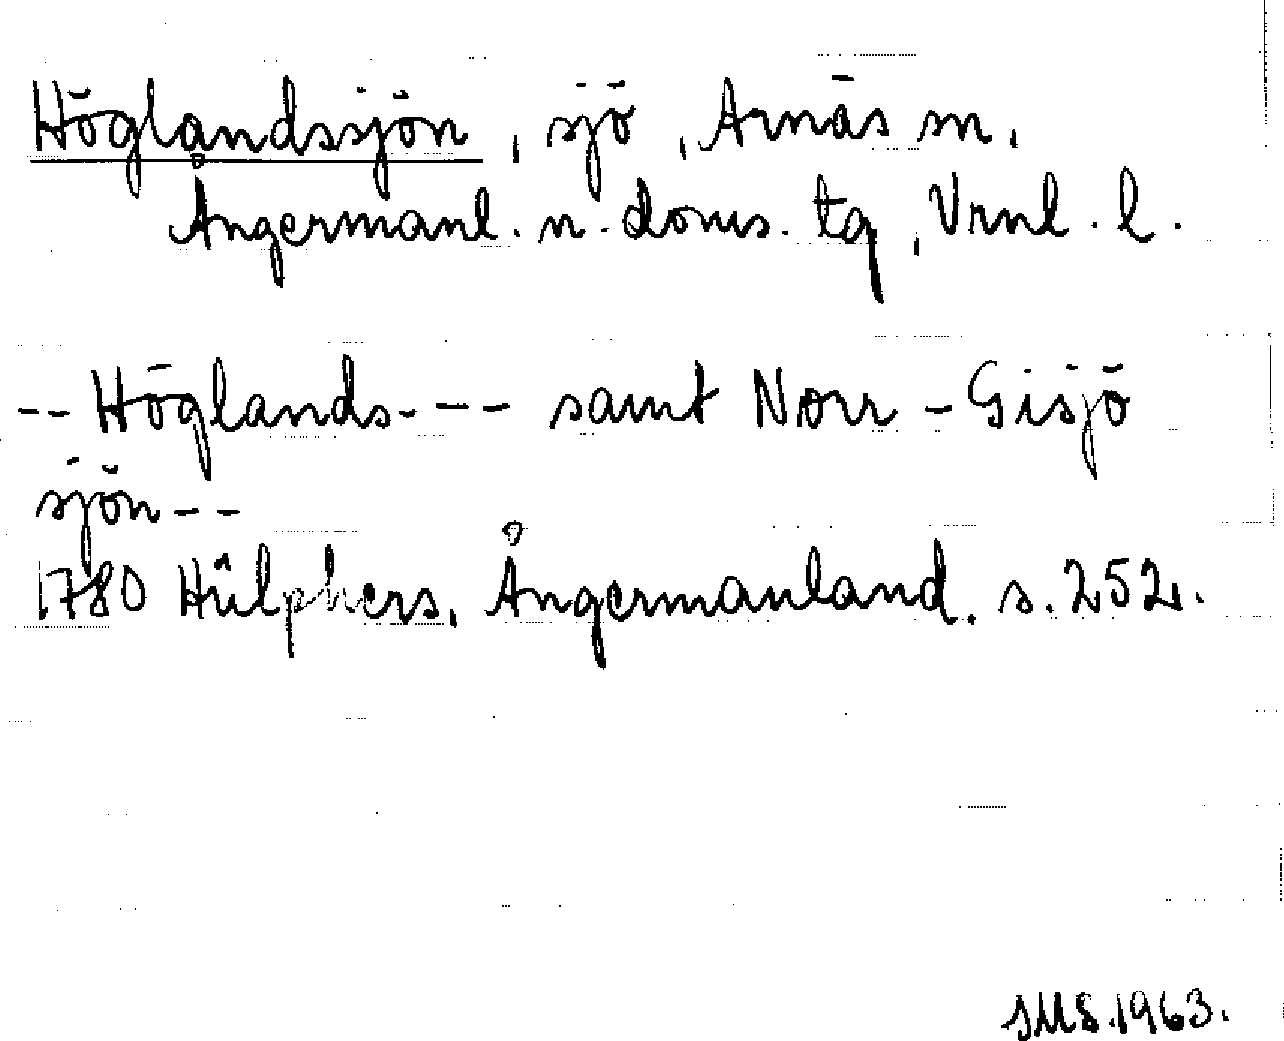 Höglandssjön, sjö, Arnäs sn,
Ångermanl. n. doms. tg, Vrnl. l.
-- Höglands--- samt Norr-Gisjö
sjön--
1780 Hülphers, Ångermanland. s. 252.
SMS. 1963.